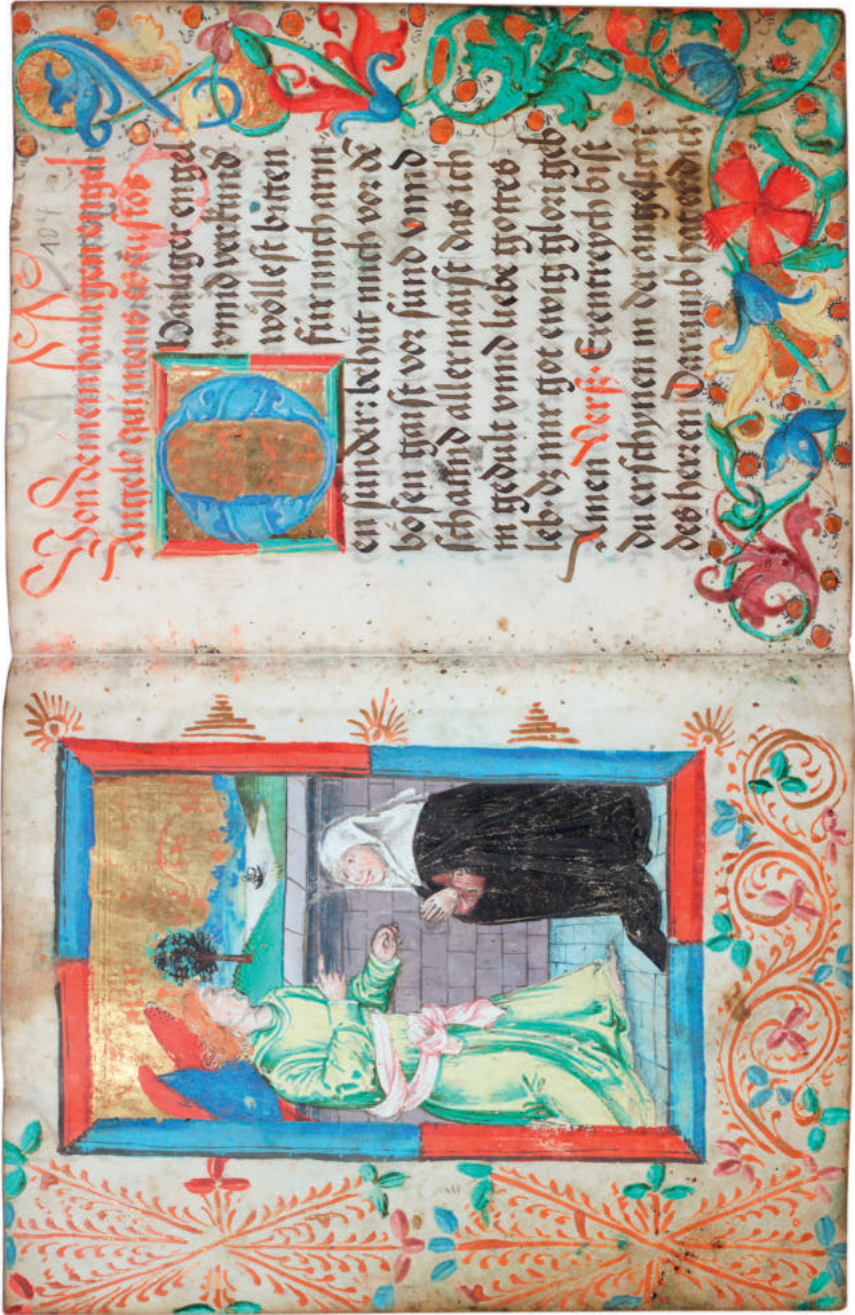 104
Von demem hailigen engel
Angele qui meus es custos
O Hailiger engel
vnnd verkund
wollest bitten
für mich arm
en sunder: behut mich vor dē
bösen gaist vor sund vnnd
schannd aller maist das ich
in gedult vnnd liebe gottes
leb. dz mir got ewig glori geb
Amen Verß. Erentreych bist
du erschynen in der angesicht
des herren Darumb hat er dich